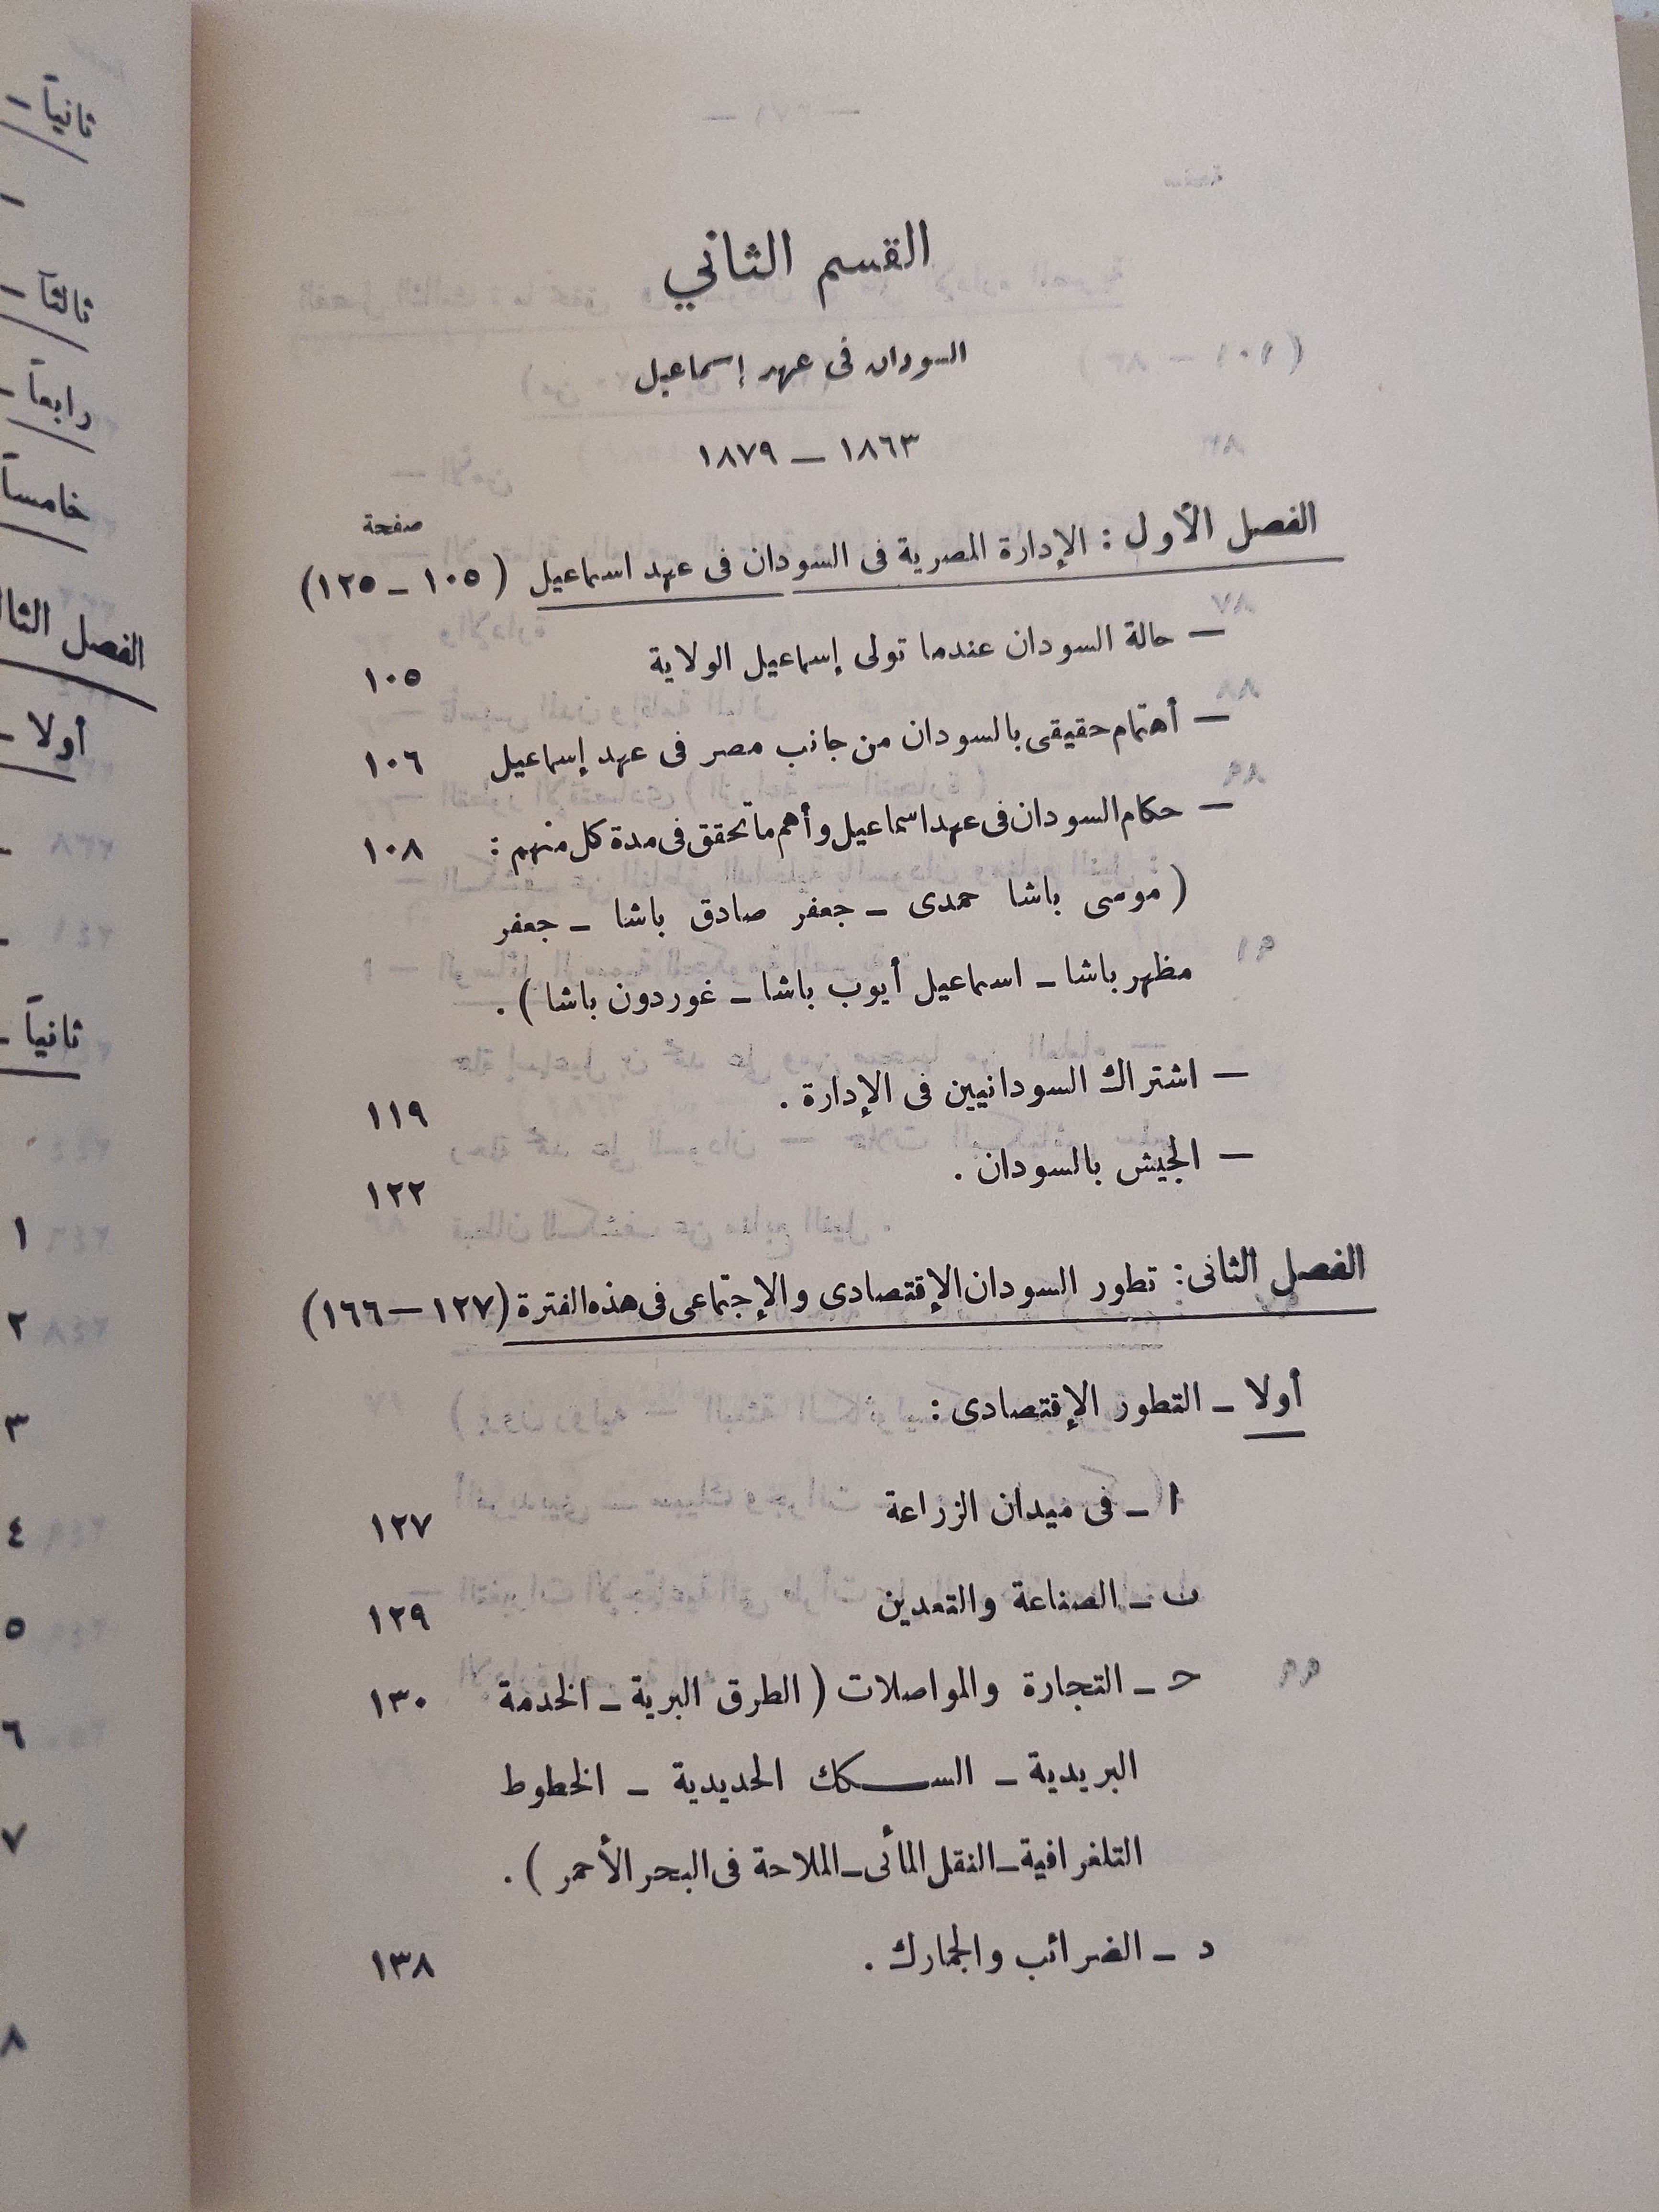 القسم الثاني
السودان فى عهد إسماعيل
١٨٦٣ — ١٨٧٩
صفحة
الفصل الأول : الإدارة المصرية فى السودان فى عهد اسماعيل ( ١٠٥ - ١٢٥ )
— حالة السودان عندما تولى إسماعيل الولاية ١٠٥
— أهتمام حقيقى بالسودان من جانب مصر فى عهد إسماعيل ١٠٦
— حكام السودان فى عهد اسماعيل وأهم ما تحقق فى مدة كل منهم : ١٠٨
( موسى باشا حمدى - جعفر صادق باشا - جعفر
مظهر باشا - اسماعيل أيوب باشا - غوردون باشا ) .
— اشتراك السودانيين فى الإدارة . ١١٩
— الجيش بالسودان . ١٢٢
الفصل الثانى : تطور السودان الإقتصادى والإجتماعى فى هذه الفترة ( ١٢٧ — ١٦٦ )
أولا - التطور الإقتصادى :
ا - فى ميدان الزراعة ١٢٧
ب - الصناعة والتعدين ١٢٩
ح - التجارة والمواصلات ( الطرق البرية - الخدمة ١٣٠
البريدية - السكك الحديدية - الخطوط
التلغرافية - النقل المأئى - الملاحة فى البحر الأحمر ) .
د - الضرائب والجمارك . ١٣٨
ثانياً -
ثالثاً -
رابعاً -
خامساً
الفصل
أولا -
ثانياً -
١
٢
٣
٤
٥
٦
٧
٨